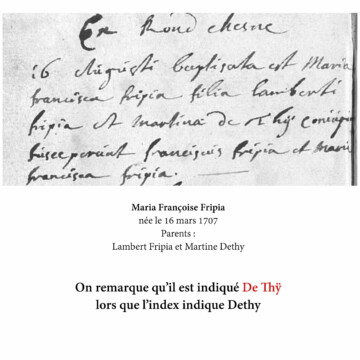 En Rond chesne
16 Augusti baptisata est Maria
francisca fripia filia lamberti
fripia et martina de Thÿ coniugu
susceperunt franciscus fripia et Maria
francisca fripia.
Maria Françoise Fripia
née le 16 mars 1707
Parents :
Lambert Fripia et Martine Dethy
On remarque qu'il est indiqué De Thÿ
lors que l'index indique Dethy